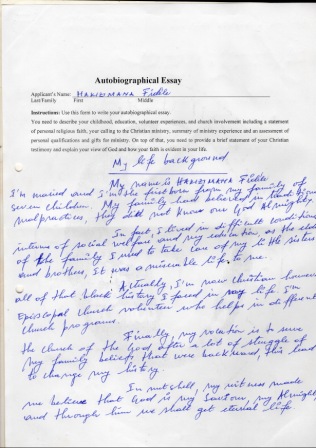 Autobiographical Essay
Applicant's Name: HAKIZIMANA Fidèle
Last/Family First Middle
Instructions: Use this form to write your autobiographical essay.
You need to describe your childhood, education, volunteer experiences, and church involvement including a statement
of personal religious faith, your calling to the Christian ministry, summary of ministry experience and an assessment of
personal qualifications and gifts for ministry. On top of that, you need to provide a brief statement of your Christian
testimony and explain your view of God and how your faith is evident in your life.
My life background
My name is HAKIZIMANA Fidèle
I'm married and I'm the first born from my family of
seven children. My family had believed in
malpractices, they did not know one God Almighty.
In fact, I lived in difficult conditions
interms of social welfare and my education, as the elder
of the family I used to take care of my little sisters
and brothers, It was a miserable life to me.
Actually, I'm now christian however
all of that black history I faced in my life I'm
Episcopal church volunteer who helps in different
church programs.
Finally, my vocation is to serve
the church of the God after a lot of struggle of
my family beliefs that were backward, this lead
to change my history.
In nutshell, my witness made
me believe that God is my Saviour, my Almighty
and through him we shall get eternal life.